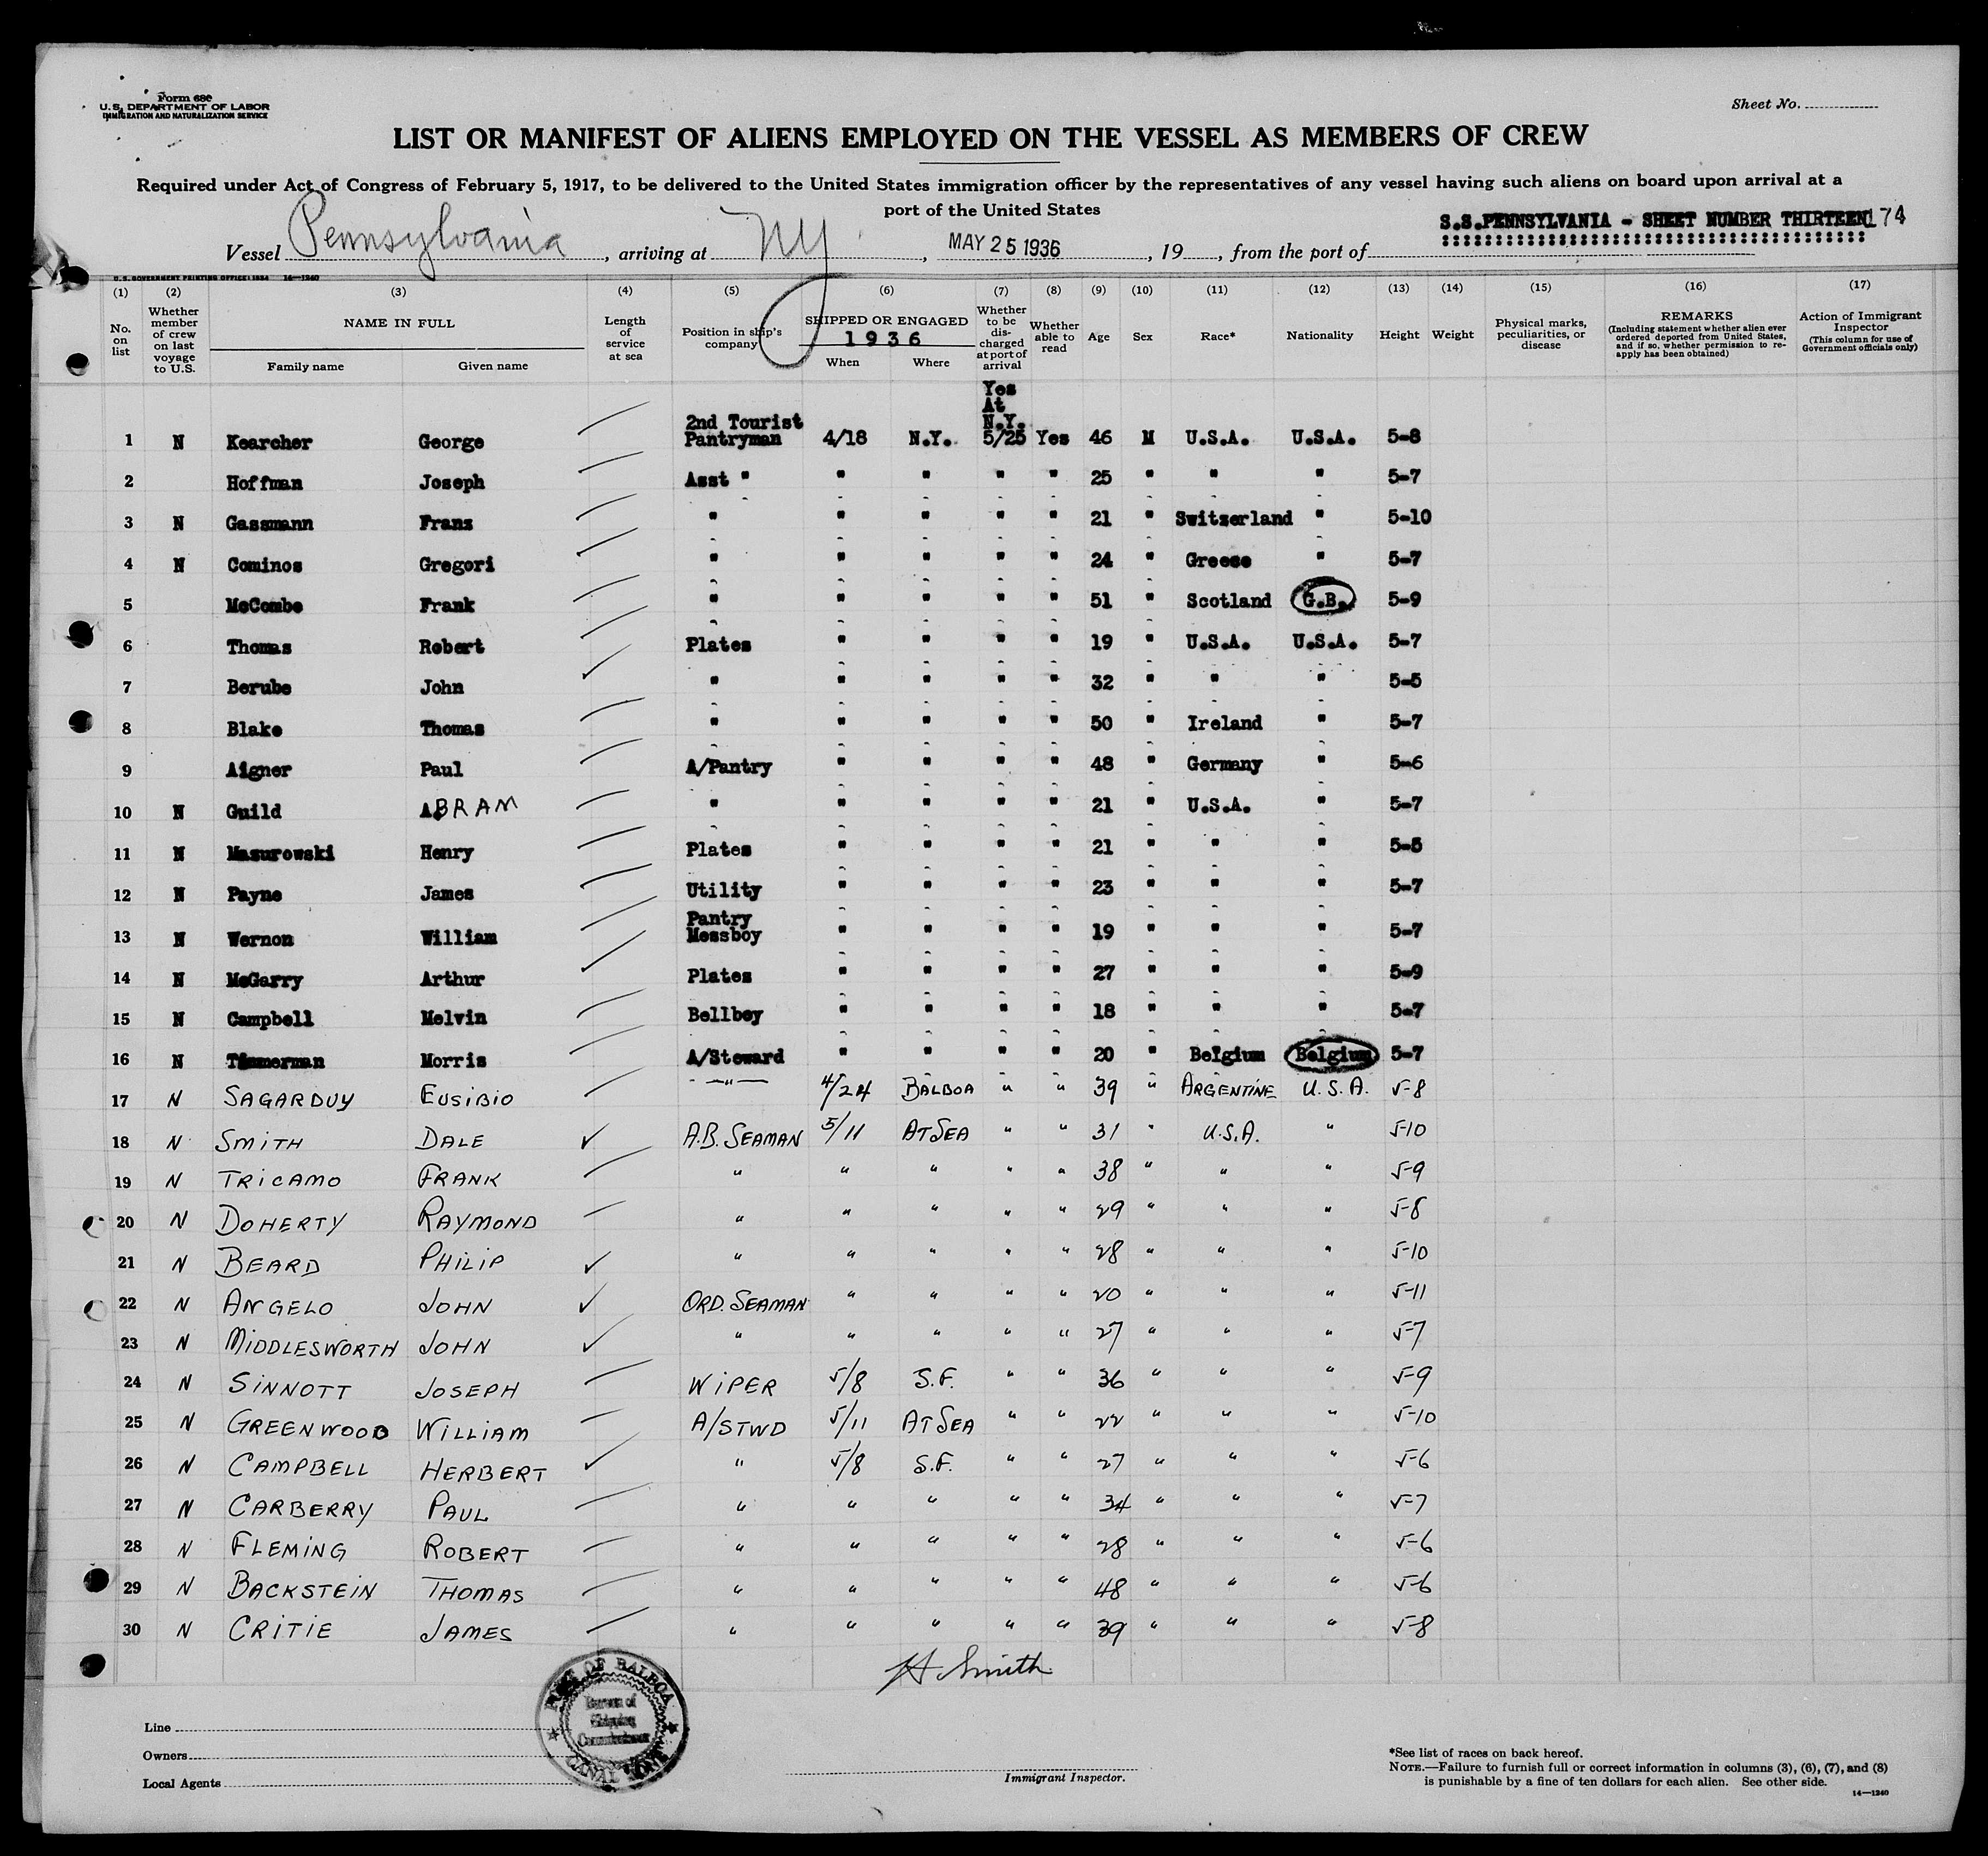 Form 680
U. S. DEPARTMENT OF LABOR
IMMIGRATION AND NATURALIZATION SERVICE
Sheet No.
LIST OR MANIFEST OF ALIENS EMPLOYED ON THE VESSEL AS MEMBERS OF CREW
Required under Act of Congress of February 5, 1917, to be delivered to the United States immigration officer by the representatives of any vessel having such aliens on board upon arrival at a
port of the United States
S.S.PENNSYLVANIA - SHEET NUMBER THIRTEEN 174
Vessel Pennsylvania, arriving at NY, MAY 25 1936, 19, from the port of
U. S. GOVERNMENT PRINTING OFFICE: 1934 14—1240
(1) (2) (3) (4) (5) (6) (7) (8) (9) (10) (11) (12) (13) (14) (15) (16) (17)
No. on list
Whether member of crew on last voyage to U.S.
NAME IN FULL
Family name Given name
Length of service at sea
Position in ship's company
SHIPPED OR ENGAGED
1936
When Where
Whether to be discharged at port of arrival
Whether able to read
Age Sex Race* Nationality Height Weight
Physical marks, peculiarities, or disease
REMARKS
(Including statement whether alien ever ordered deported from United States, and if so, whether permission to reapply has been obtained)
Action of Immigrant Inspector
(This column for use of Government officials only)
Yes
At
N.Y.
1 N Kearcher George 2nd Tourist Pantryman 4/18 N.Y. 5/25 Yes 46 M U.S.A. U.S.A. 5-8
2 Hoffman Joseph Asst " " " " " 25 " " " 5-7
3 N Gassmann Franz " " " " " 21 " Switzerland " 5-10
4 N Cominos Gregori " " " " " 24 " Greese " 5-7
5 McCombe Frank " " " " " 51 " Scotland G.B. 5-9
6 Thomas Robert Plates " " " " 19 " U.S.A. U.S.A. 5-7
7 Berube John " " " " " 32 " " " 5-5
8 Blake Thomas " " " " " 50 " Ireland " 5-7
9 Aigner Paul A/Pantry " " " " 48 " Germany " 5-6
10 N Guild ABRAM " " " " " 21 " U.S.A. " 5-7
11 N Mazurowski Henry Plates " " " " 21 " " " 5-5
12 N Payne James Utility " " " " 23 " " " 5-7
13 N Wernon William Pantry Messboy " " " " 19 " " " 5-7
14 N McGarry Arthur Plates " " " " 27 " " " 5-9
15 N Campbell Melvin Bellboy " " " " 18 " " " 5-7
16 N Timmerman Morris A/Steward " " " " 20 " Belgium Belgium 5-7
17 N SAGARDUY EUSIBIO —"— 4/24 BALBOA " " 39 " ARGENTINE U.S.A. 5-8
18 N SMITH DALE A.B. SEAMAN 5/11 AT SEA " " 31 " U.S.A. " 5-10
19 N TRICAMO FRANK " " " " " 38 " " " 5-9
20 N DOHERTY RAYMOND " " " " " 29 " " " 5-8
21 N BEARD PHILIP " " " " " 28 " " " 5-10
22 N ANGELO JOHN ORD. SEAMAN " " " " 20 " " " 5-11
23 N MIDDLESWORTH JOHN " " " " " 27 " " " 5-7
24 N SINNOTT JOSEPH WIPER 5/8 S.F. " " 36 " " " 5-9
25 N GREENWOOD WILLIAM A/STWD 5/11 AT SEA " " 22 " " " 5-10
26 N CAMPBELL HERBERT " 5/8 S.F. " " 27 " " " 5-6
27 N CARBERRY PAUL " " " " " 34 " " " 5-7
28 N FLEMING ROBERT " " " " " 28 " " " 5-6
29 N BACKSTEIN THOMAS " " " " " 48 " " " 5-6
30 N CRITIE JAMES " " " " " 39 " " " 5-8
H Smith
PORT OF BALBOA
Bureau of
Shipping
Commissioner
CANAL ZONE
Line
Owners
Local Agents
Immigrant Inspector.
*See list of races on back hereof.
NOTE.—Failure to furnish full or correct information in columns (3), (6), (7), and (8)
is punishable by a fine of ten dollars for each alien. See other side.
14—1240